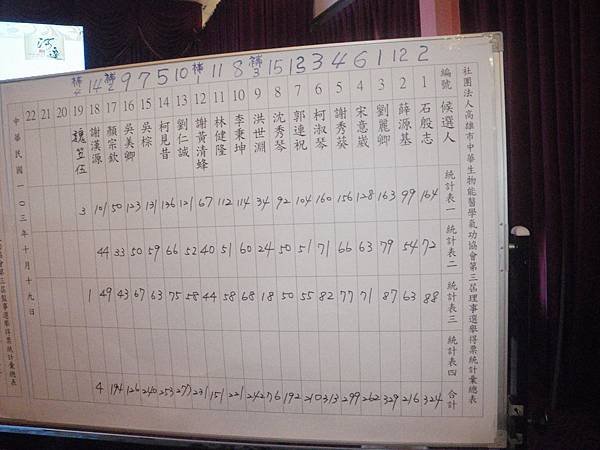 社團法人高雄市中華生物能醫學氣功協會第三屆理事選舉得票統計彙總表
編號 候選人 統計表一 統計表二 統計表三 統計表四 合計
2 1 石殷志 164 72 88 324
12 2 薛源基 99 54 63 216
1 3 劉麗卿 163 79 87 329
6 4 宋意崴 128 63 71 262
4 5 謝秀葵 156 66 77 299
3 6 柯淑琴 160 71 82 313
13 7 郭連祝 104 51 55 210
15 8 沈秀琴 92 50 50 192
補3 9 洪世淵 34 24 18 76
8 10 李秉坤 114 60 68 242
11 11 林健隆 112 51 58 221
補1 12 謝黃清蜂 67 40 44 151
10 13 劉仁誠 121 52 58 231
5 14 柯見昔 136 66 75 277
7 15 吳棕 131 59 63 253
9 16 吳美卿 123 50 67 240
補2 17 顏宗欽 50 33 43 126
14 18 謝漢源 101 44 49 194
補4 19 3 1 4
20
21
22
中華民國一0三年十月十九日
會第三屆監事選舉得票統計彙總表